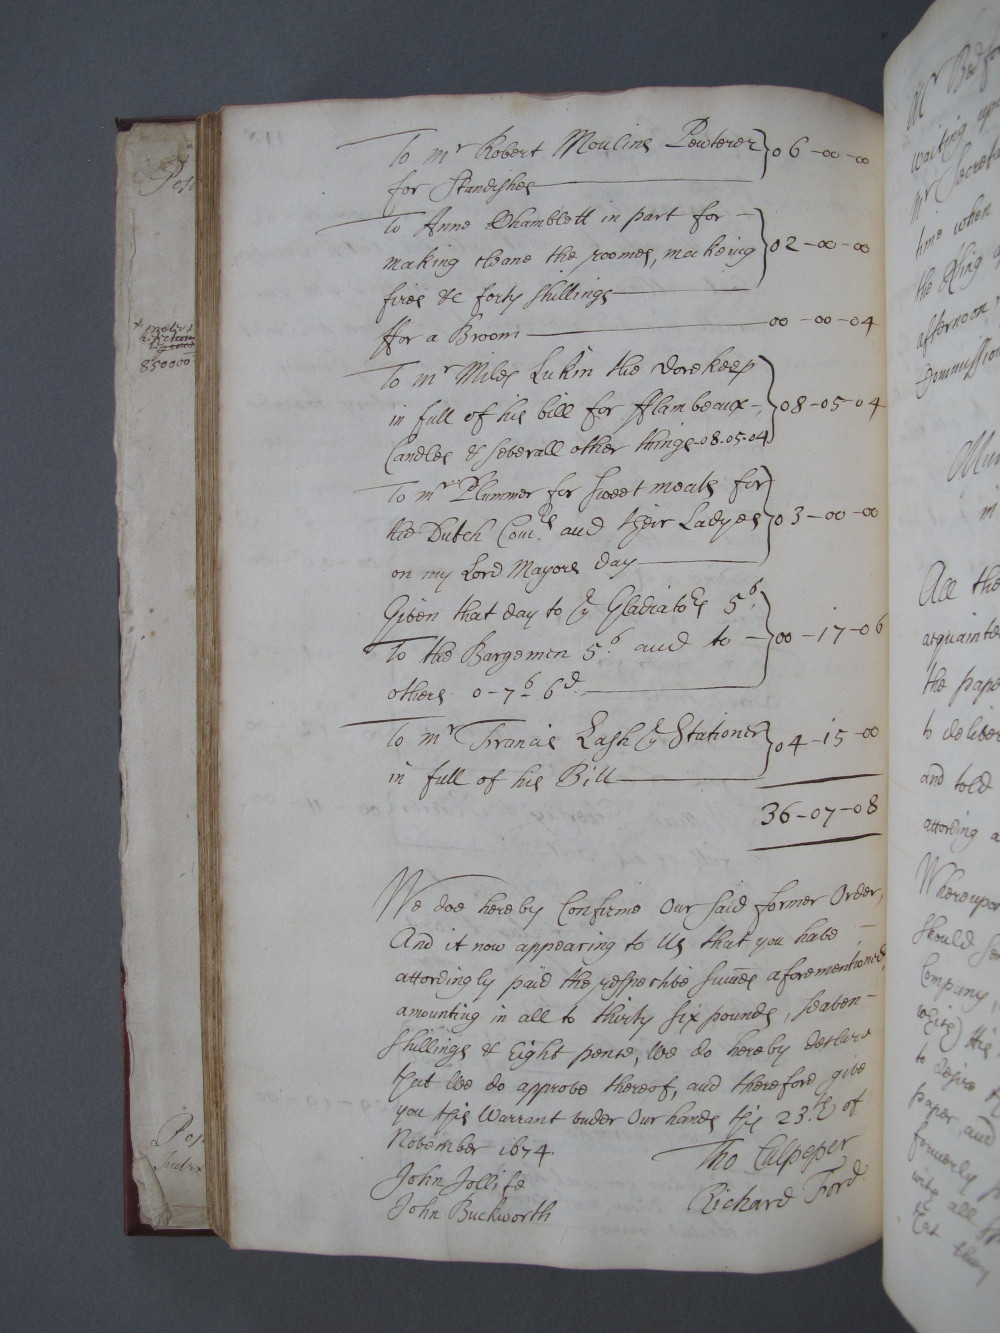 To mr Robert Mouline Pewterer
for Standishes
06-00-00
To Anne Chamblett in part for
making cleane the roomes, makeing
fires &c forty Shillings
02-00-00
ffor a Broom
00-00-04
To mr Miles Lukin the dorekeep
in full of his bill for fflambeaux
Candles & severall other things-08.05.04
08-05-04
To mr Plummer for sweet meats for
the Dutch Comrs and their Ladyes
on my Lord Mayors day
03-00-00
Given that day to ye Gladiators 5s
To the Bargemen 5s. and to
others 0-7s 6d
00-17-06
To mr Francis Lash ye Stationer
in full of his Bill
04-15-00
36-07-08
We doe hereby Confirme Our said former Order,
And it now appearing to Us that you have
accordingly paid the respective sumes aforementioned,
amounting in all to thirty six pounds, seaven
shillings & Eight pence, We do hereby declare
that We do approve thereof, and therefore give
you this Warrant under Our hands this 23.th of
November 1674.
Tho Culpeper
John Jollife
Richard Ford
John Buckworth
850000
Index
Mr Bedfor
waiting up
Mr Secreta
time when
the King
afternoon
Commission
All the
acquainte
the pape
to deliver
and told
according a
Whereupon
should
Company,
to desire
paper, and
formerly
with all
that they